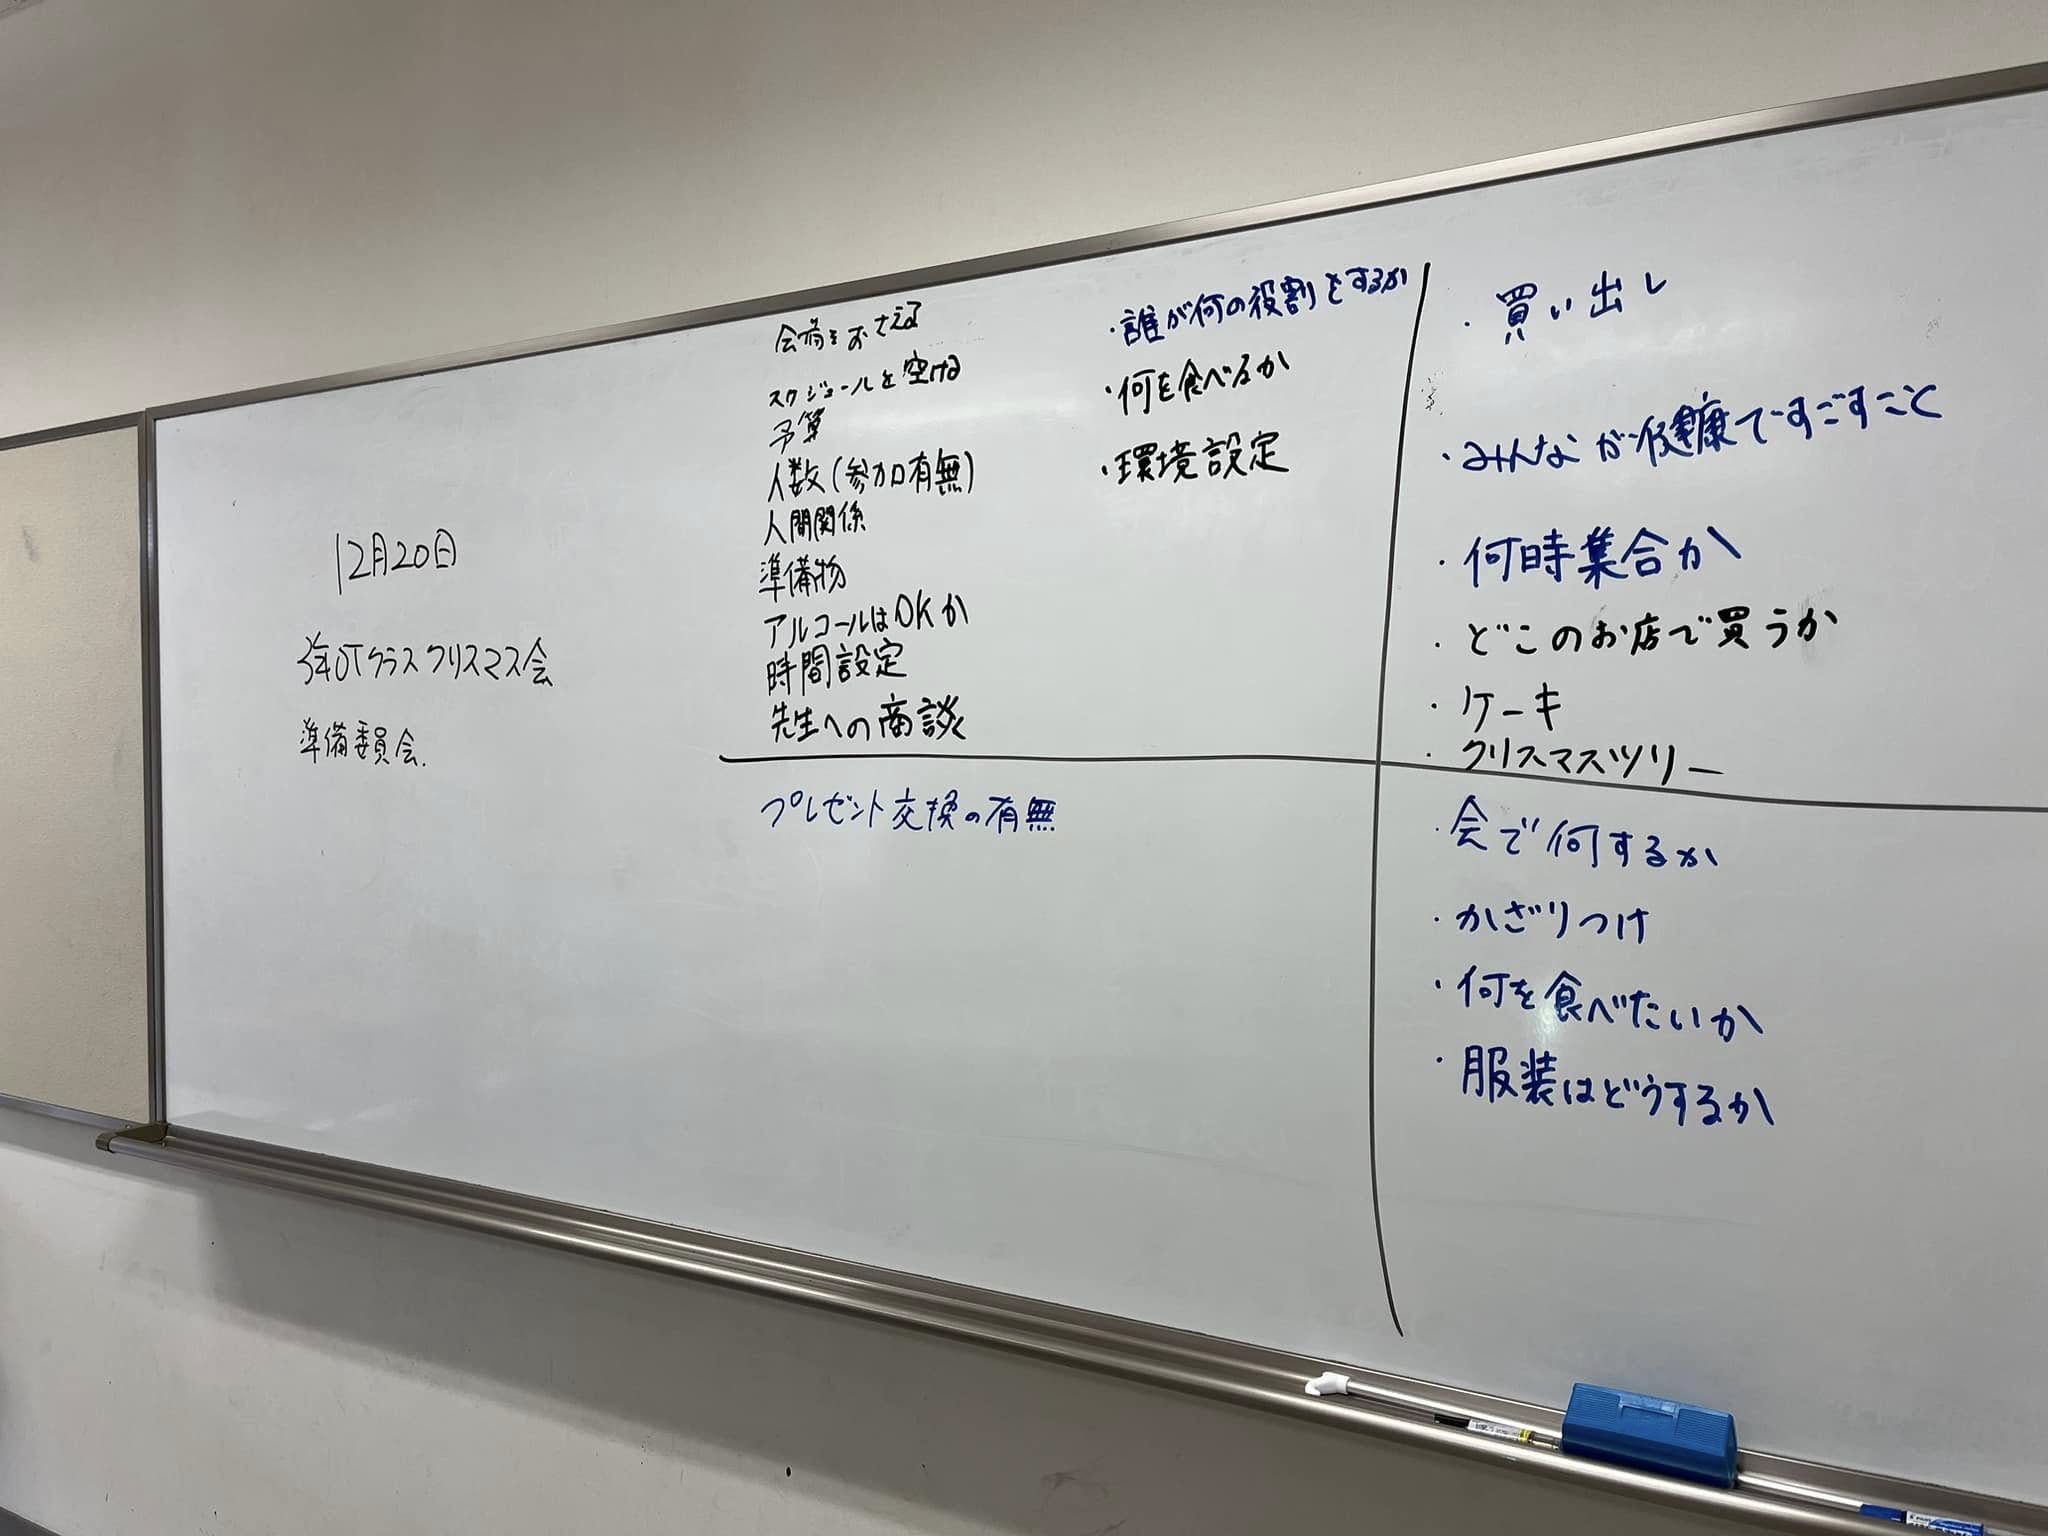 12月20日
3年OTクラスクリスマス会
準備委員会.
会場をおさえる
スケジュールを空ける
予算
人数(参加有無)
人間関係
準備物
アルコールはOKか
時間設定
先生への商談
・誰が何の役割をするか
・何を食べるか
・環境設定
・買い出し
・みんなが健康ですごすこと
・何時集合か
・どこのお店で買うか
・ケーキ
・クリスマスツリー
プレゼント交換の有無
・会で何するか
・かざりつけ
・何を食べたいか
・服装はどうするか